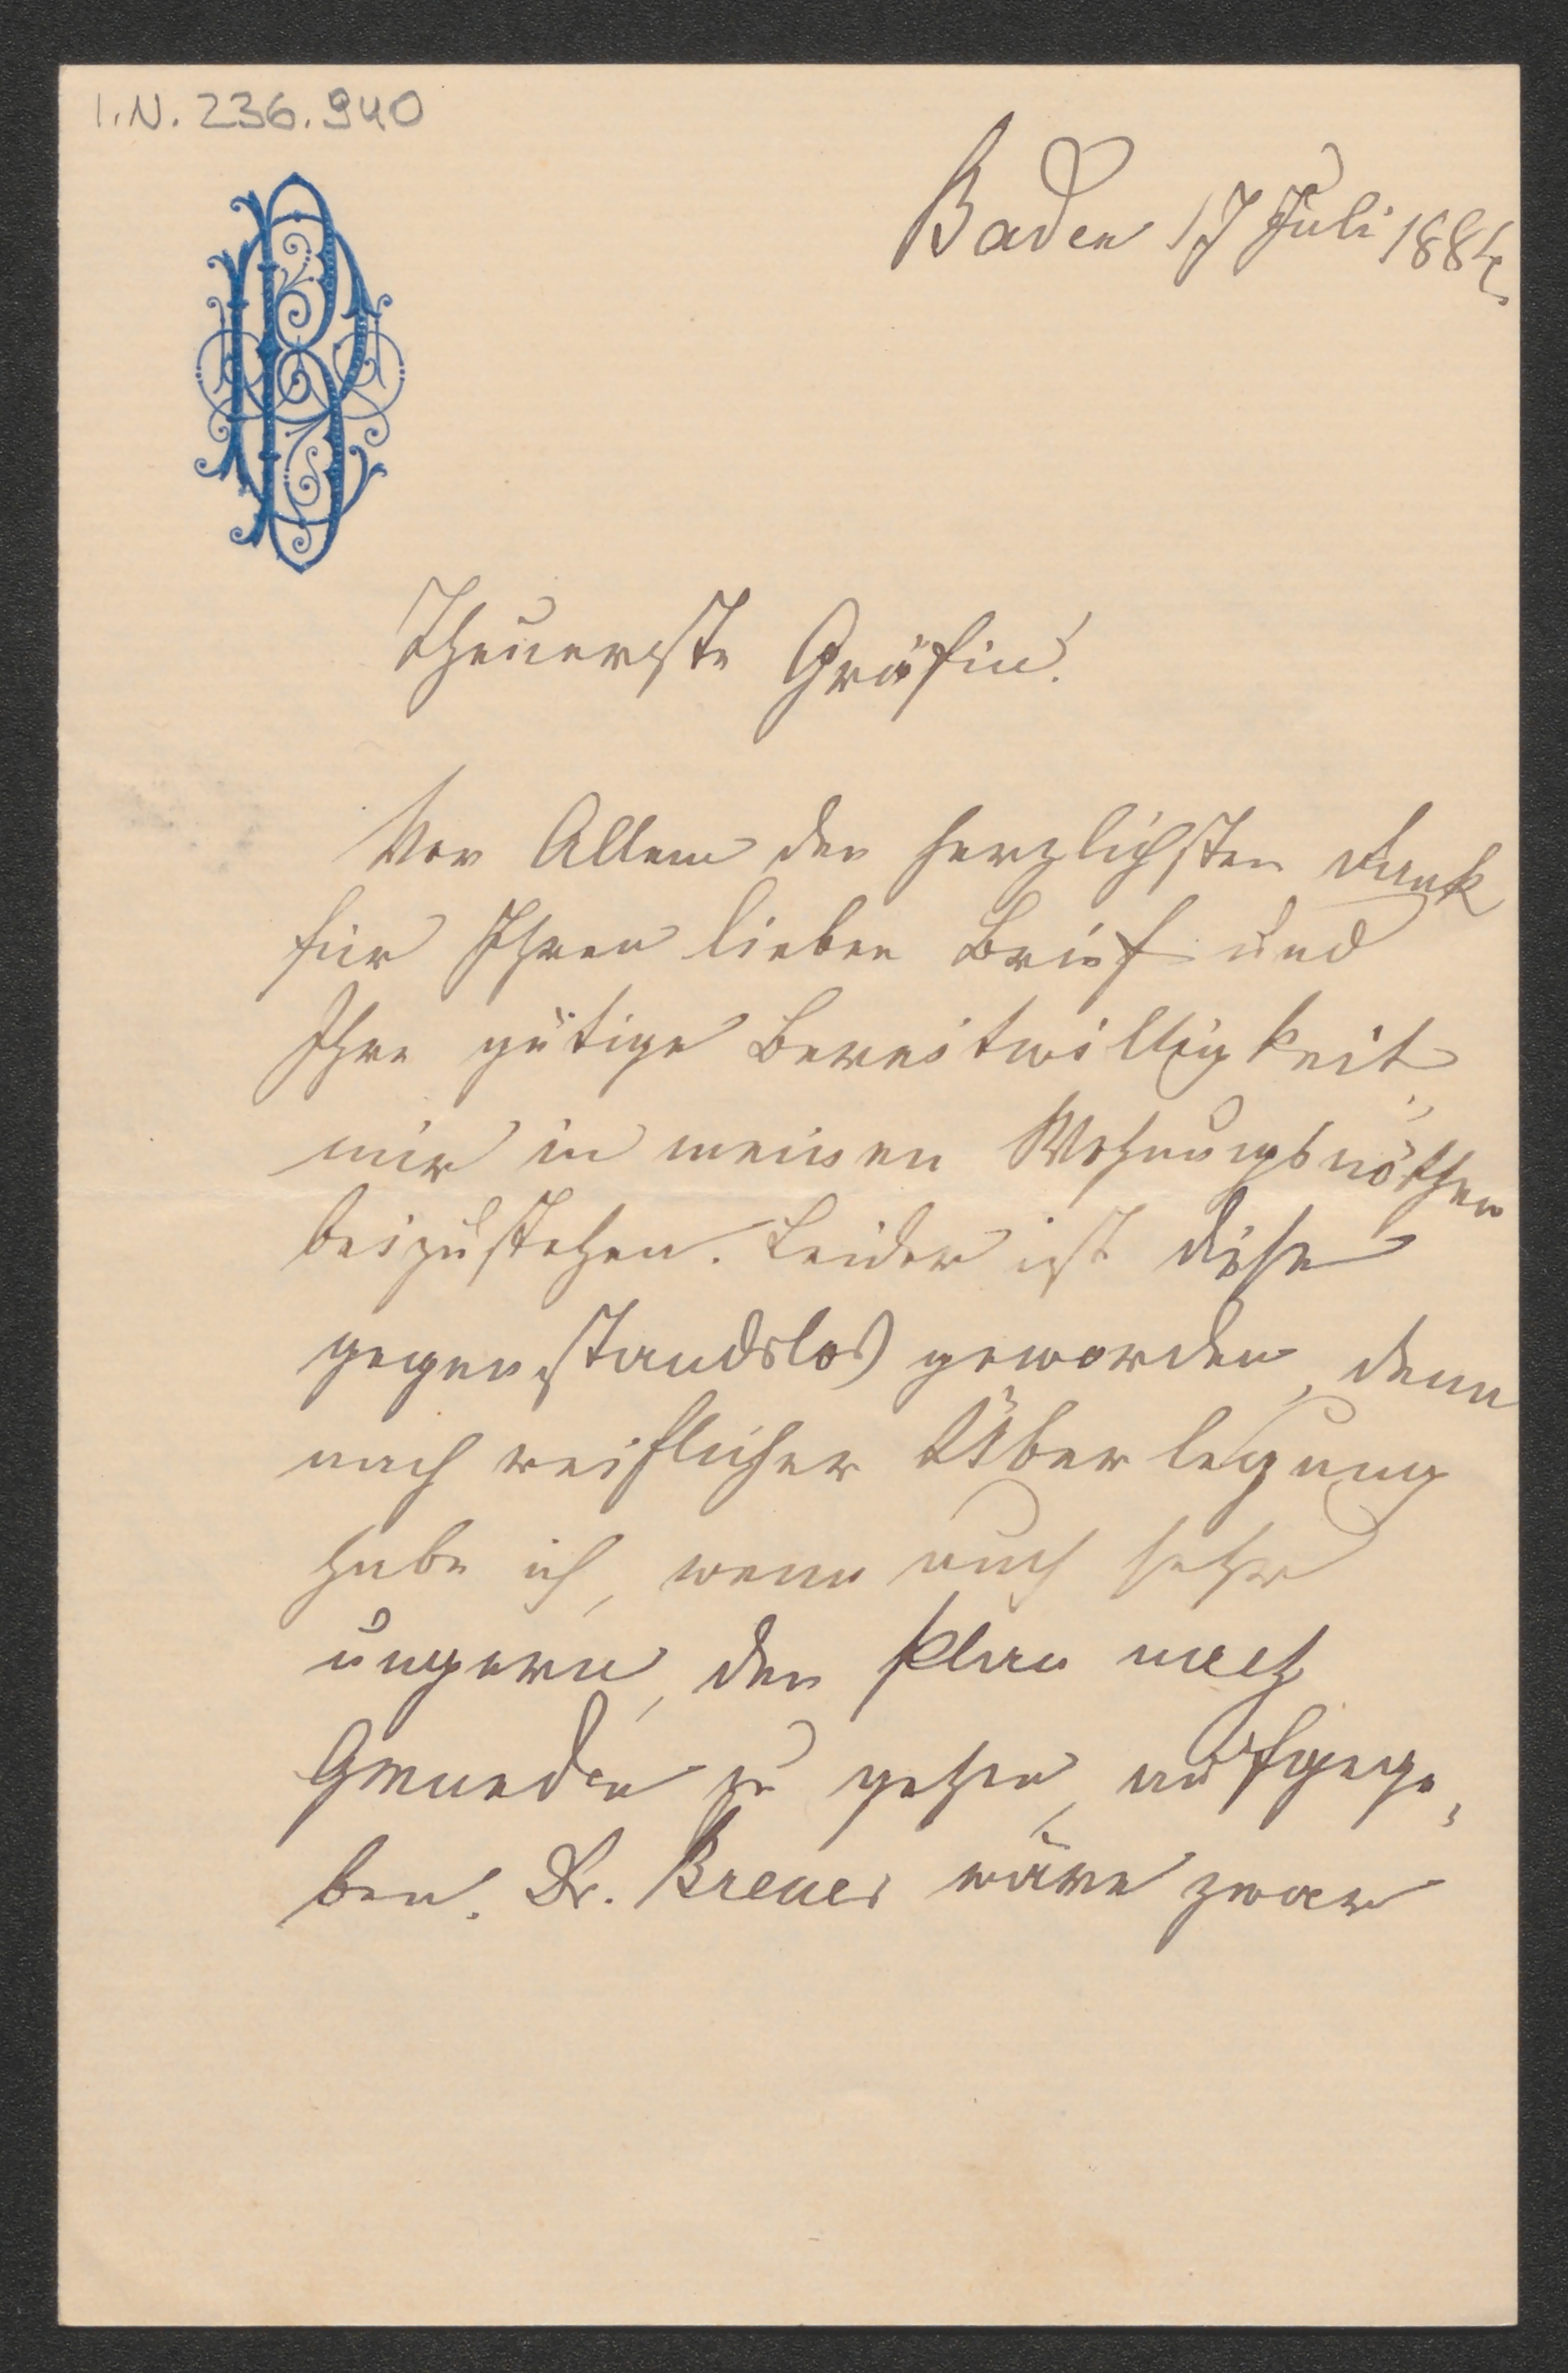 I.N. 236.940
Baden 17 Juli 1884.
Theuerste Gräfin!
Vor Allem den herzlichsten Dank
für Ihren lieben Brief und
Ihre gütige Bereitwilligkeit
mir in meinen Wohnungsnöthen
beizustehen. Leider ist diese
gegenstandslos geworden, denn
nach reiflicher Überlegung
habe ich, wenn auch sehr
ungern, den Plan nach
Gmunden zu gehen, aufgege-
ben. Dr. Breuer wäre zwar